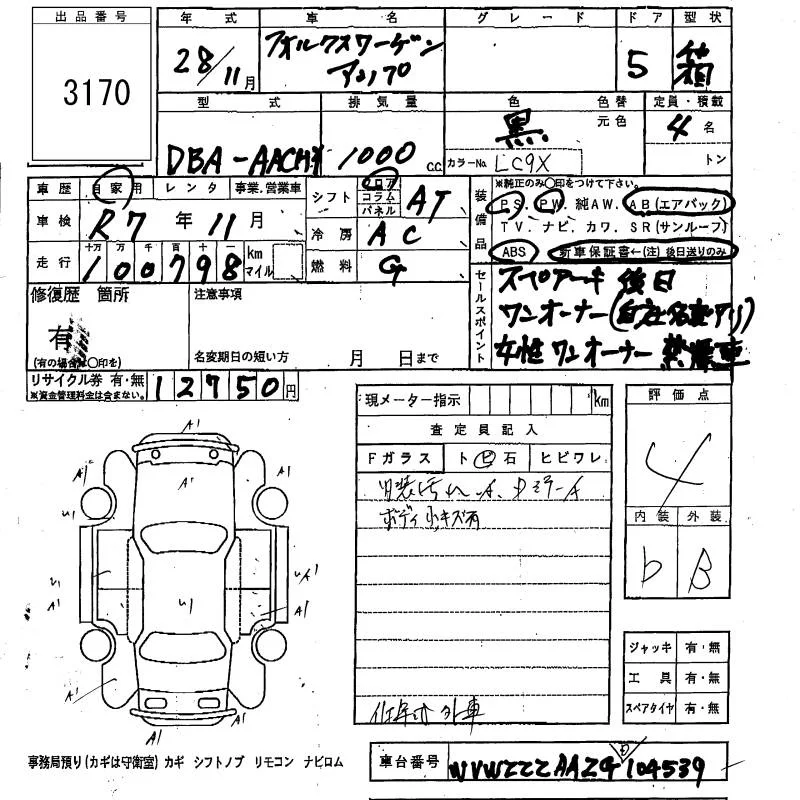 出品番号
3170
年 式 車 名 グレード ドア 型状
28/11月 フォルクスワーゲン 5 箱
アップ
型 式 排気量 色 色替 定員・積載
黒 元色 4 名
DBA-AACHY 1000 c.c. カラーNo. LC9X トン
車歴 自家用 レンタ 事業.営業車
シフト フロア コラム パネル AT
車検 R7 年 11 月
冷房 AC
走行 十万 万 千 百 十 一 km マイル
100798
燃料 G
装備品
※純正のみ○印をつけて下さい。
PS. PW. 純AW. AB(エアバック)
TV. ナビ. カワ. SR(サンルーフ)
ABS 新車保証書←(注)後日送りのみ
セールスポイント
スペアーキ 後日
ワンオーナー(自社名変アリ)
女性 ワンオーナー 禁煙車
修復歴 箇所 注意事項
有
(有の場合は○印を) 名変期日の短い方 月 日まで
リサイクル券 有・無 12750円
※資金管理料金は含まない。
現メーター指示 km
査定員記入
Fガラス ト ビ 石 ヒビワレ
内装汚れA.
ボディ小キズ有
外車
評価点
4
内装 外装
B
ジャッキ 有・無
工 具 有・無
スペアタイヤ 有・無
A1
A1
A1
A1
U1
U1
A1
U1
UA1
A1
A1
A1
A1
事務局預り(カギは守衛室) カギ シフトノブ リモコン ナビロム
車台番号 WVWZZZAAZG104539